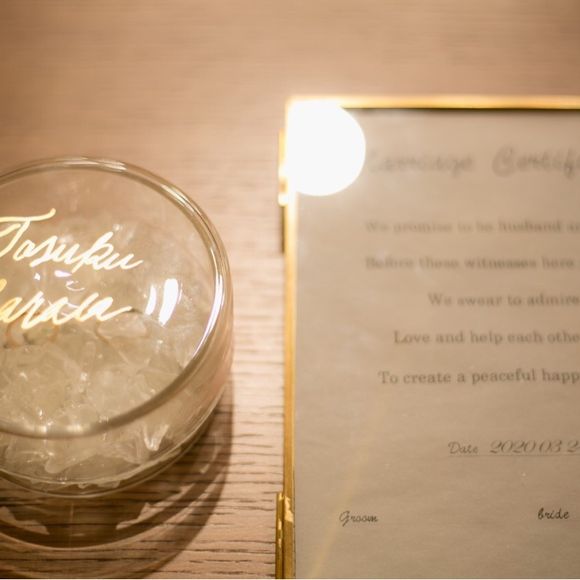 Tasuku
Marriage Certifi
We promise to be husband a
Before these witnesses here
We swear to admire
Love and help each othe
To create a peaceful happ
Date 2020 03 2
Groom
bride